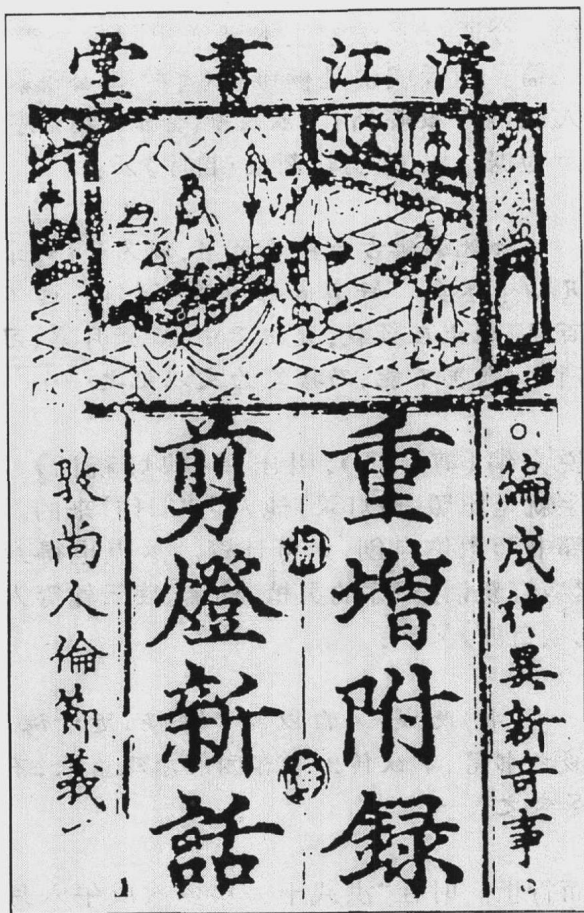 清江書堂
編成神異新奇事
重增附録
剪燈新話
敦尚人倫節義